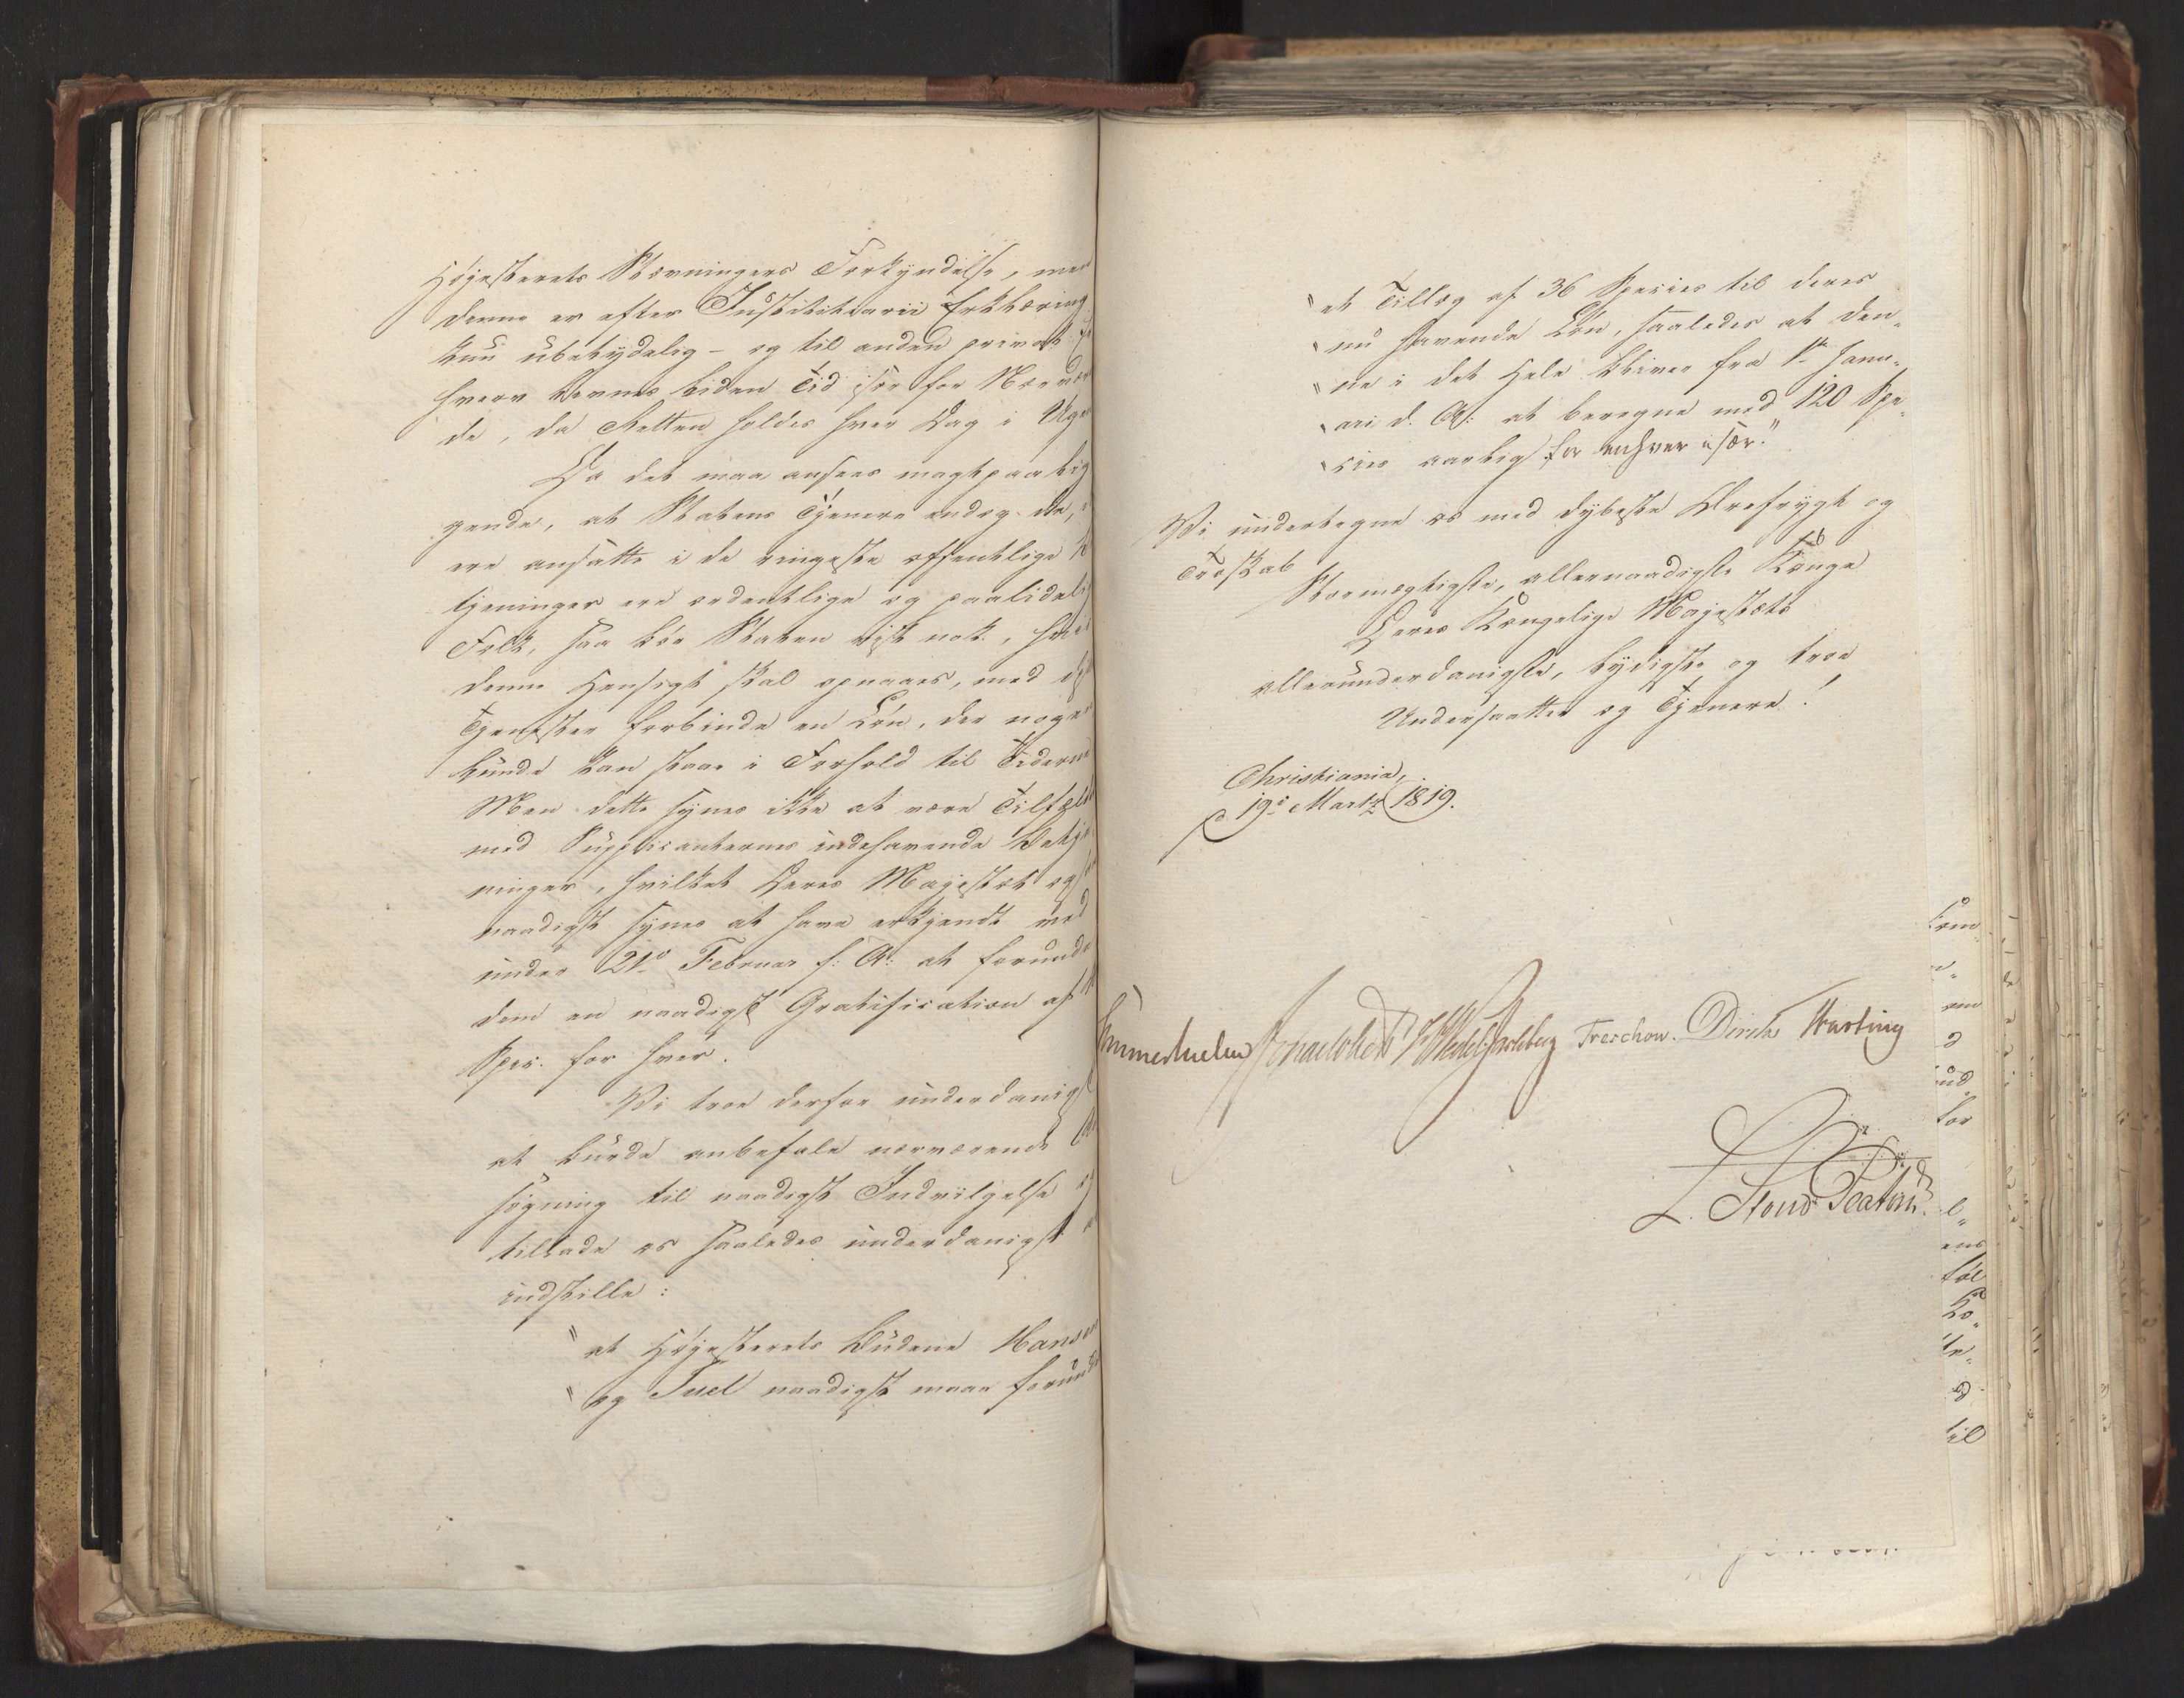 Højesterets Stævningers Forkyndelse, men
denne er efter Justitiarii Erklæring
kun ubetydelig - og til anden privat
hverv levnes liden Tid især for Nærvæ
de, da Retten holdes hver Dag i Uge
Da det maa ansees magtpaalig
gende, at Statens Tjenere endog de,
ere ansatte i de ringeste offentlige
tjeninger ere ordentlige og paalidelig
Folk, saa bør Staten vist nok, hvis
denne Hensigt skal opnaaes, med
Tjenester forbinde en Løn, der noge
lunde kan staae i Forhold til Tiderne
Men dette synes ikke at være Tilfæld
med Supplicanternes indehavende Betje
ninger, hvilket Deres Majestæt og
naadigst synes at have erkjendt ved
under 21de Februar f: A: at forunde
dem en naadigst Gratification af
Spec. for hver.
Vi troe derfor underdanigst
at burde anbefale nærværende
søgning til naadigst Indvilgelse og
tillade os saaledes underdanigst
indstille:
"at Højesterets Budene Hansen
"og Juel naadigst maae forundes
"et Tillæg af 36 Species til deres
"nu havende Løn, saaledes at den-
"ne i det Hele bliver fra 1te Janu-
"ari d. A: at beregne med 120 Spe-
"cies aarlig for enhver især."
Vi undertegne os med dybeste Ærefrygt og
Troskab
Stormægtigste, allernaadigste Konge
Deres Kongelige Majestæts
allerunderdanigste, lydigste og troe
Undersaatter og Tjenere!
Christiania,
d. 19de Martz 1819.
Sommerhielm Wedel Jarlsberg Treschow. Diriks Hasting
L. Stoud Platou